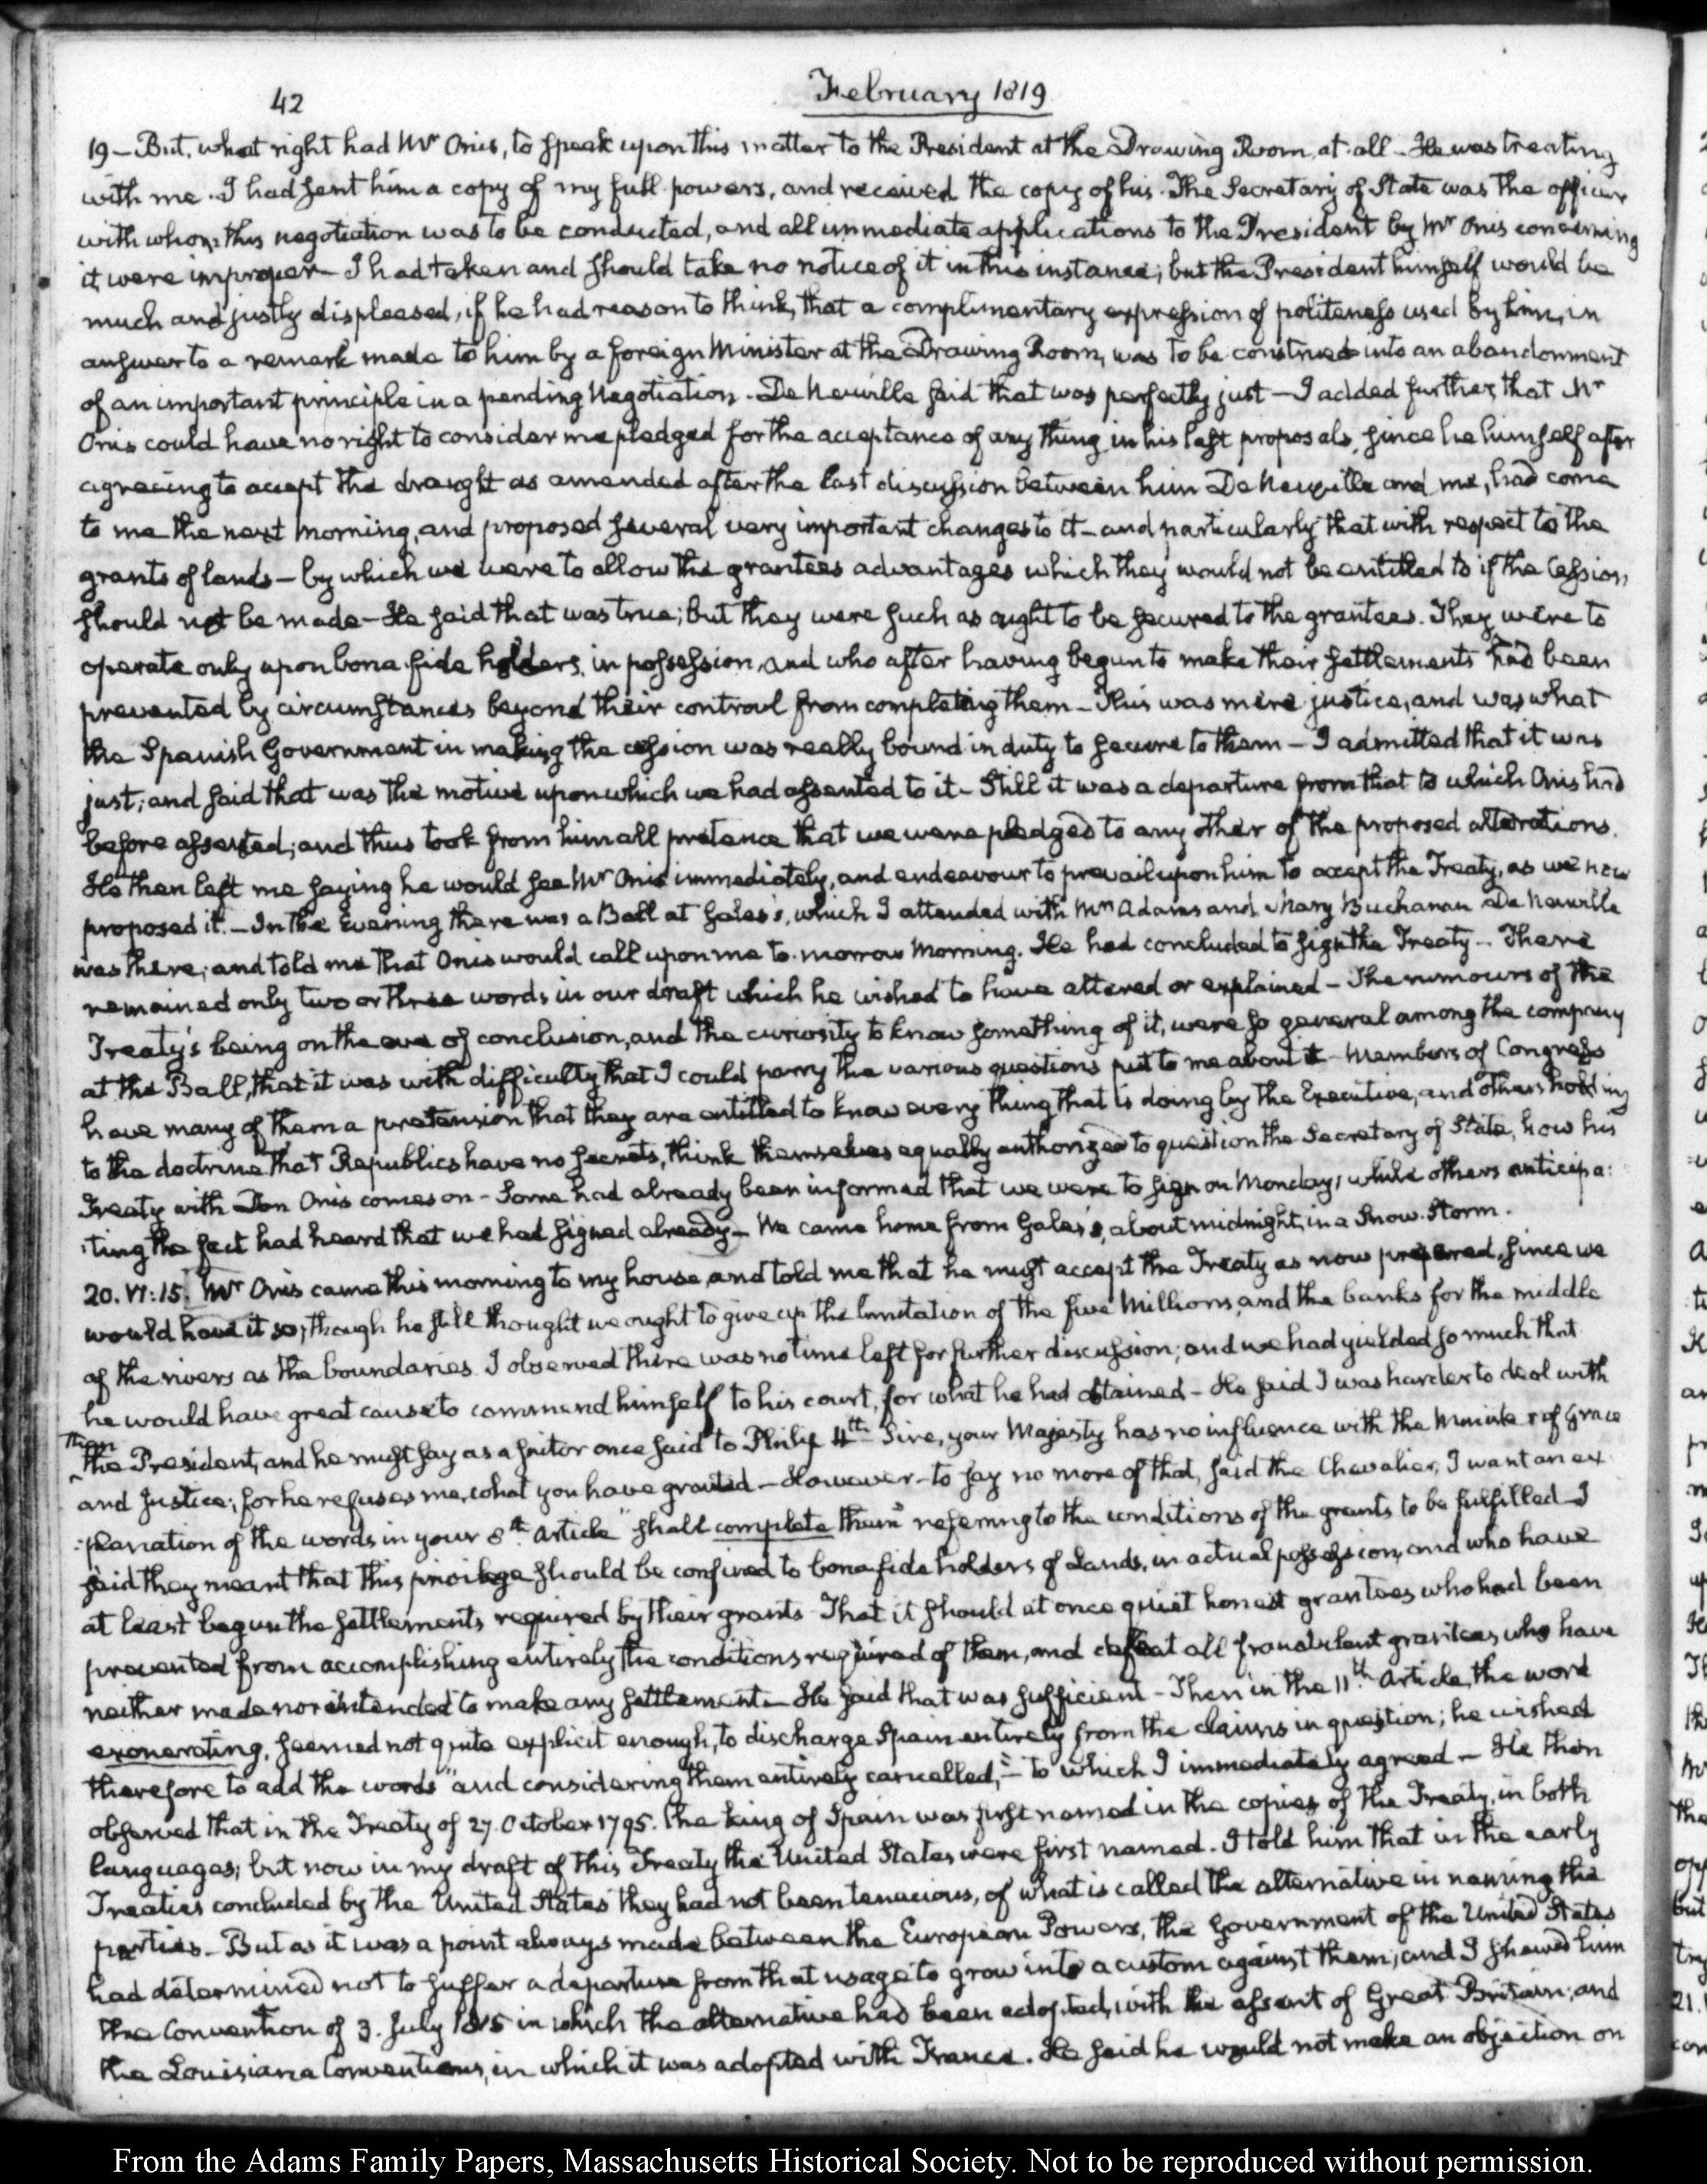 42
February 1819
19 – But, what right had Mr Onis, to speak upon this matter to the President at the Drawing Room, at all – He was treating
with me. I had sent him a copy of my full powers, and received the copy of his. The Secretary of State was the officer
with whom this negotiation was to be conducted, and all immediate applications to the President by Mr Onis concerning
it were improper – I had taken and should take no notice of it in this instance; but the President himself would be
much and justly displeased, if he had reason to think, that a complimentary expression of politeness used by him, in
answer to a remark made to him by a foreign Minister at the Drawing Room, was to be construed into an abandonment
of an important principle in a pending Negotiation. De Neuville said that was perfectly just – I added further, that Mr
Onis could have no right to consider me pledged for the acceptance of any thing in his last proposals, since he himself after
agreeing to accept the draught as amended after the last discussion between him De Neuville and me, had come
to me the next morning, and proposed several very important changes to it – and particularly that with respect to the
grants of lands – by which we were to allow the grantees advantages which they would not be entitled to if the Cession,
should not be made – He said that was true; but they were such as ought to be secured to the grantees. They were to
operate only upon bona fide holders, in possession, and who after having begun to make their settlements had been
prevented by circumstances beyond their controul from completing them – This was mere justice, and was what
the Spanish Government in making the cession was really bound in duty to secure to them – I admitted that it was
just; and said that was the motive upon which we had assented to it – Still it was a departure from that to which Onis had
before assented; and thus took from him all pretence that we were pledged to any other of the proposed alterations.
He then left me saying he would see Mr Onis immediately, and endeavour to prevail upon him to accept the Treaty, as we now
proposed it. – In the Evening there was a Ball at Gales's, which I attended with Mrs Adams and Mary Buchanan De Neuville
was there; and told me that Onis would call upon me to-morrow Morning. He had concluded to sign the Treaty – There
remained only two or three words in our draft which he wished to have altered or explained – The rumours of the
Treaty's being on the eve of conclusion, and the curiosity to know something of it, were so general among the company
at the Ball, that it was with difficulty that I could parry the various questions put to me about it – Members of Congress
have many of them a pretension that they are entitled to know every thing that is doing by the Executive, and others holding
to the doctrine that Republics have no secrets, think themselves equally authorized to question the Secretary of State, how his
Treaty with Don Onis comes on – Some had already been informed that we were to sign on Monday, while others anticipa:
:ting the fact had heard that we had signed already – We came home from Gales's, about midnight, in a Snow-Storm.
20. VI:15. Mr Onis came this morning to my house, and told me that he must accept the Treaty as now prepared, since we
would have it so, though he still thought we ought to give up the limitation of the five Millions, and the banks for the middle
of the rivers as the boundaries. I observed there was no time left for further discussion; and we had yielded so much that
he would have great cause to commend himself to his court, for what he had obtained – He said I was harder to deal with
than
the President, and he must say as a suitor once said to Philip 4th Sire, your Majesty has no influence with the Minister of Grace
and Justice; for he refuses me, what you have granted – However – to say no more of that, said the Chevalier, I want an ex
:planation of the words in your 8th Article "shall complete them" referring to the conditions of the grants to be fulfilled – I
said they meant that this privilege should be confined to bona fide holders of Lands, in actual possession, and who have
at least begun the settlements required by their grants – That it should at once quiet honest grantees who had been
prevented from accomplishing entirely the conditions required of them, and defeat all fraudulent grantees, who have
neither made nor intended to make any settlement – He said that was sufficient – Then in the 11th Article, the word
exonerating, seemed not quite explicit enough, to discharge Spain entirely from the claims in question; he wished
therefore to add the words "and considering them entirely cancelled," – to which I immediately agreed – He then
observed that in the Treaty of 27. October 1795. the king of Spain was first named in the copies of the Treaty, in both
languages; but now in my draft of this Treaty the United States were first named. I told him that in the early
Treaties concluded by the United States they had not been tenacious, of what is called the alternative in naming the
parties – But as it was a point always made between the European Powers, the Government of the United States
had determined not to suffer a departure from that usage to grow into a custom against them; and I shewed him
the Convention of 3. July 1815 in which the alternative had been adopted, with the assent of Great Britain; and
the Louisiana Conventions, in which it was adopted with France. He said he would not make an objection on
From the Adams Family Papers, Massachusetts Historical Society. Not to be reproduced without permission.